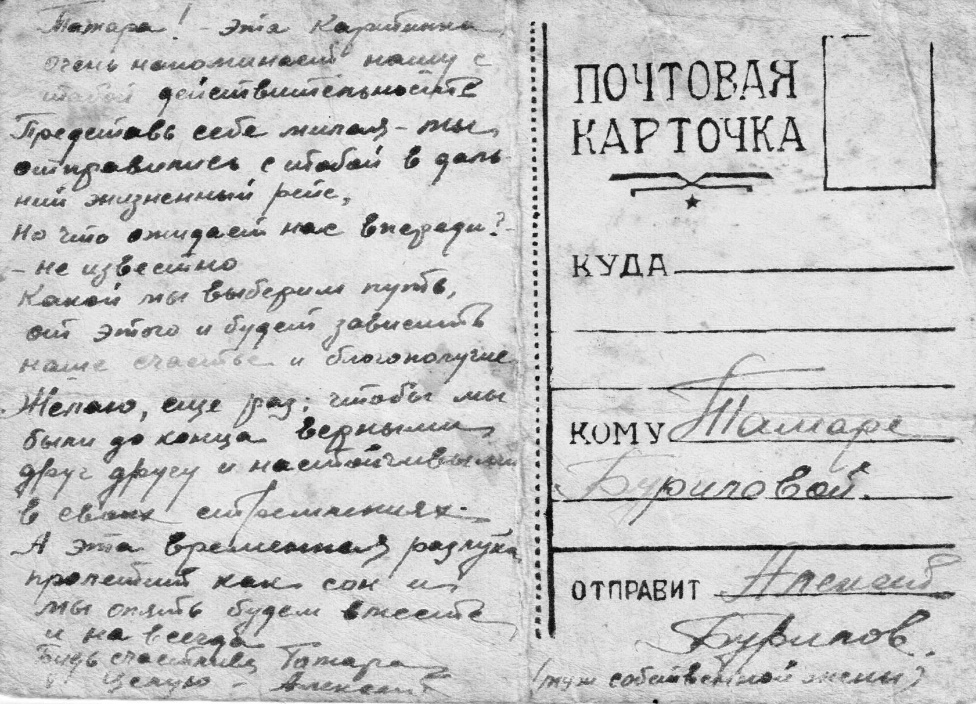 Тамара! - эта Картинка
очень напоминает нашу с
тобой действительность
Представь себе милая - мы
отправились с тобой в даль-
ний жизненный рейс,
Но что ожидает нас впереди? -
- не известно
Какой мы выберим путь,
от этого и будет зависить
наше счастье и благополучие
Желаю, еще раз; чтобы мы
были до конца верными
друг другу и настойчивыми
в своих стремлениях.
А эта временная разлука
пролетит как сон и
мы опять будем вместе
и на всегда
Будь счастлива Тамара
Целую - Алексей
ПОЧТОВАЯ
КАРТОЧКА
КУДА
КОМУ Тамаре
Буриловой.
ОТПРАВИТ Алексей
Бурилов.
(муж собственной жены)